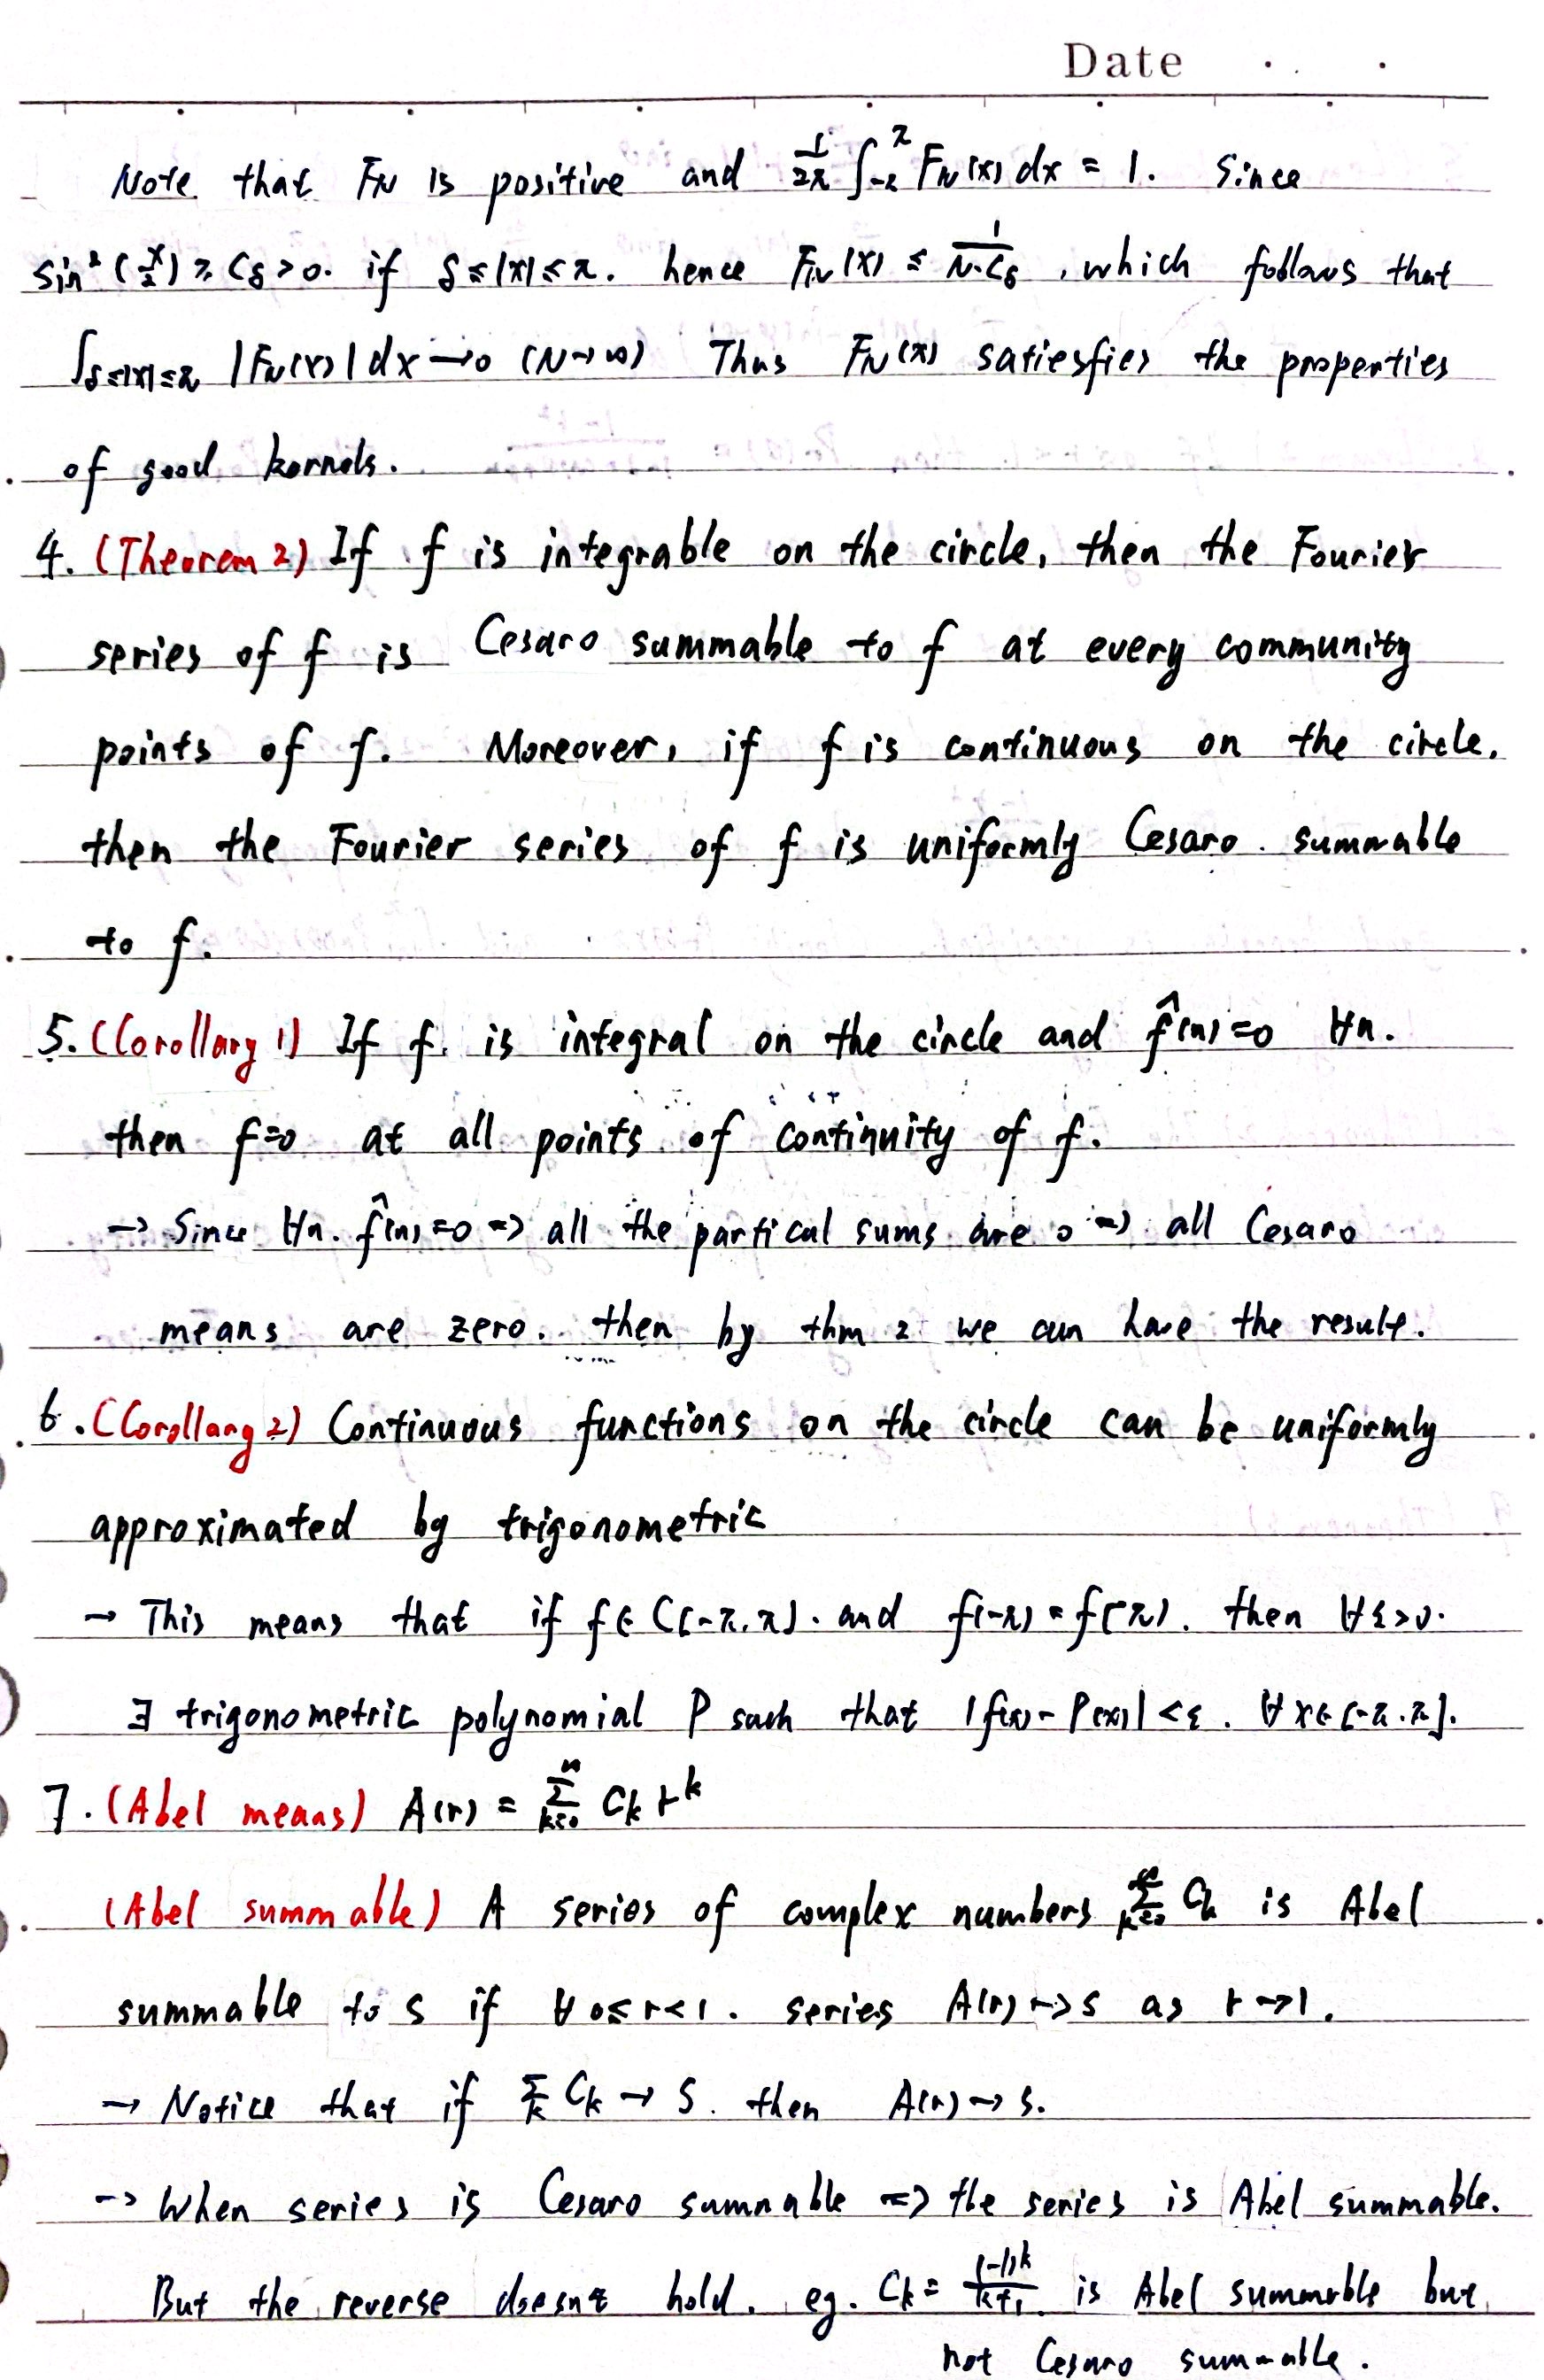 Date
Note that F_N is positive and \frac{1}{2π} ∫_{-π}^{π} F_N(x) dx = 1. Since
sin²(\frac{x}{2}) ≥ C_δ > 0. if δ ≤ |x| ≤ π. hence F_N(x) ≤ \frac{1}{N·C_δ}, which follows that
∫_{δ≤|x|≤π} |F_N(x)| dx → 0 (N→∞) Thus F_N(x) satiesfies the properties
of good kernels.
4. (Theorem 2) If f is integrable on the circle, then the Fourier
series of f is Cesaro summable to f at every community
points of f. Moreover, if f is continuous on the circle,
then the Fourier series of f is uniformly Cesaro summable
to f.
5. (Corollary 1) If f is integral on the circle and \hat{f}(n)=0 ∀n.
then f=0 at all points of continuity of f.
→ Since ∀n. \hat{f}(n)=0 => all the partical sums are 0 => all Cesaro
means are zero. then by thm 2 we can have the result.
6. (Corollary 2) Continuous functions on the circle can be uniformly
approximated by trigonometric
→ This means that if f∈C[-π,π]. and f(-π)=f(π). then ∀ε>0.
∃ trigonometric polynomial P such that |f(x)-P(x)|<ε. ∀x∈[-π.π].
7. (Abel means) A(r) = \sum_{k=0}^{∞} C_k r^k
(Abel summable) A series of complex numbers \sum_{k=0}^{∞} C_k is Abel
summable to s if ∀ 0≤r<1. series A(r)→s as r→1.
→ Notice that if \sum_k C_k → S. then A(r)→s.
→ When series is Cesaro summable => the series is Abel summable.
But the reverse doesnt hold. eg. C_k = \frac{(-1)^k}{k+1} is Abel summable but
not Cesaro summable.